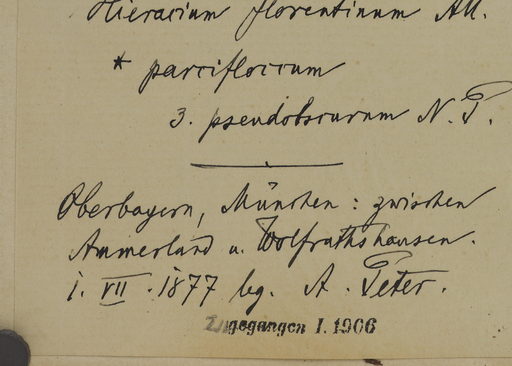 Hieracium florentinum All.
* parcifloccum
3. pseudobscurum N. P.
Oberbayern, München: zwischen
Ammerland u. Wolfrathshausen.
1. VII. 1877 lg. A. Peter.
Zugegangen I. 1906